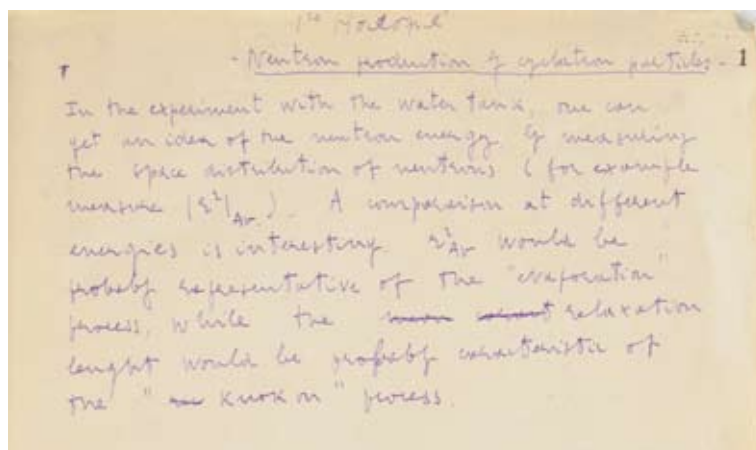 1
- Neutron production of cyclotron particles -
In the experiment with the water tank, one can
get an idea of the neutron energy by measuring
the space distribution of neutrons (for example
measure |r²|Av). A comparison at different
energies is interesting. r²Av would be
probably representative of the "evaporation"
process, while the relaxation
lenght would be probably caracteristic of
the "knok on" process.